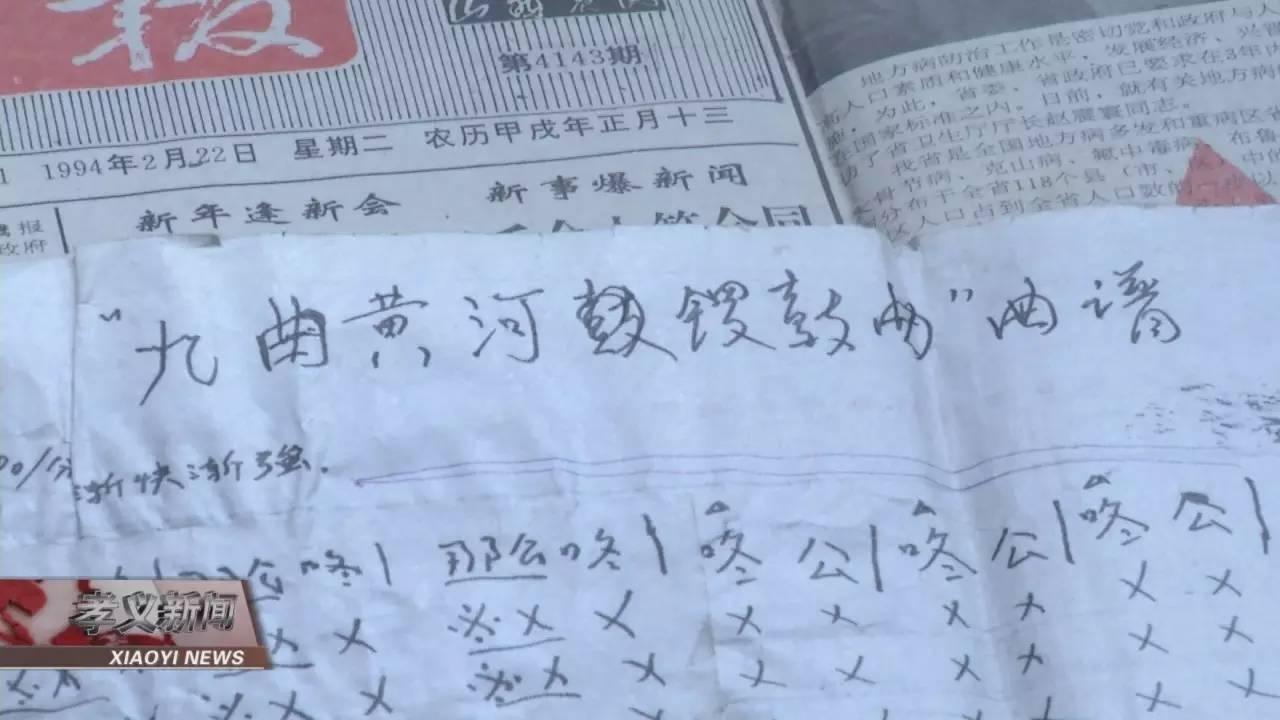 报
第4143期
1994年2月22日 星期二 农历甲戌年正月十三
新年逢新会 新事爆新闻
政府
地方病防治工作是密切党和政府与人
人口素质和健康水平，发展经济、兴晋
为此，省委、省政府已要求在3年内
国家标准之内。目前，就有关地方病
了省卫生厅厅长赵震寰同志。
我省是全国地方病多发和重病区省
节病、克山病、氟中毒病、布鲁
分布于全省118个县（市、
人口占到全省人口数的
"九曲黄河鼓锣敲曲"曲谱
渐快渐强.
咚 | 那么咚 | 咚 公 | 咚 公 | 咚 公 |
X X X X X X X X
X X X X X X X X
孝义新闻
XIAOYI NEWS